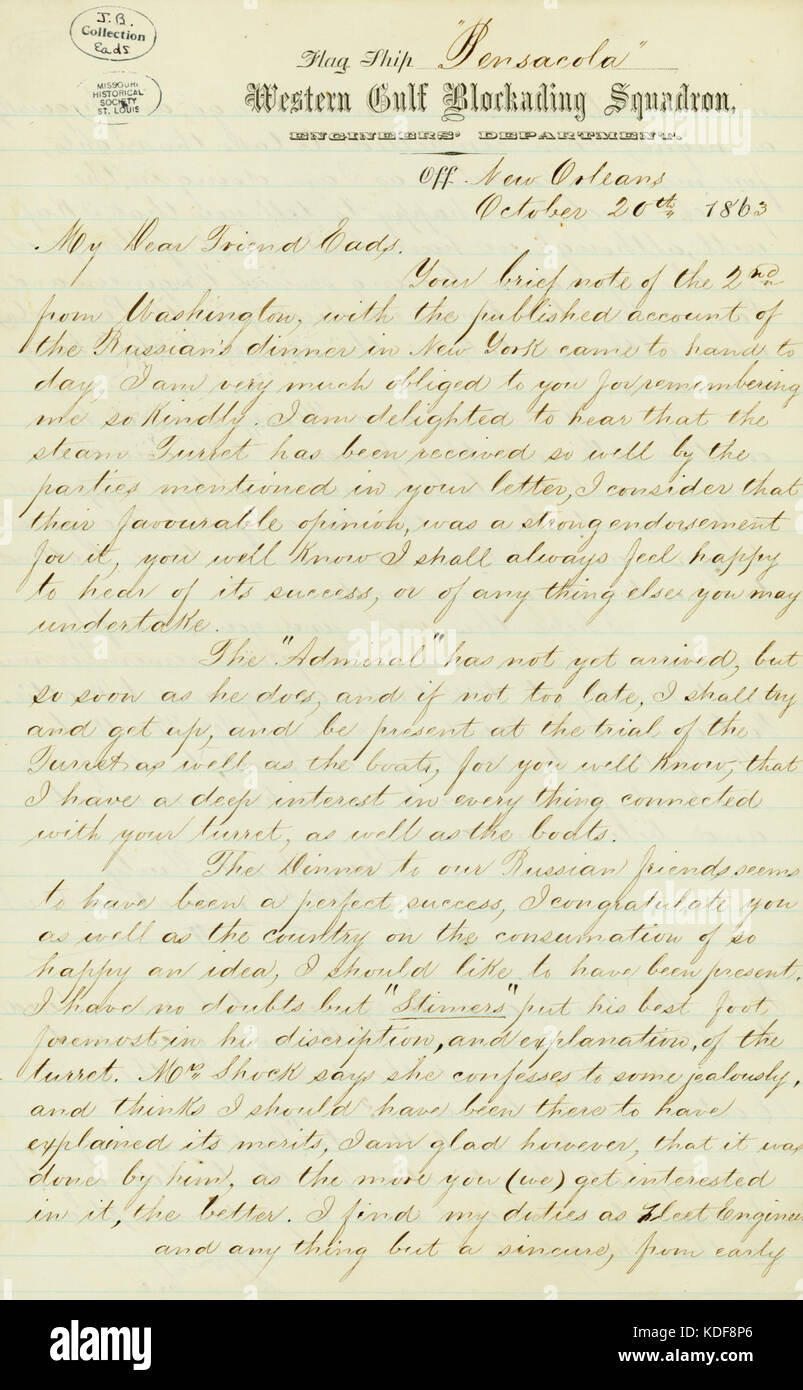 J.B.
Collection
Eads
MISSOURI
HISTORICAL
SOCIETY
ST. LOUIS
Flag Ship "Pensacola"
Western Gulf Blockading Squadron,
ENGINEERS' DEPARTMENT.
Off New Orleans
October 20th 1863
My Dear Friend Eads.
Your brief note of the 2nd
from Washington, with the published account of
the Russian's dinner in New York came to hand to
day, I am very much obliged to you for remembering
me so kindly. I am delighted to hear that the
steam Turret has been received so well by the
parties mentioned in your letter, I consider that
their favourable opinion, was a strong endorsement
for it, you well know I shall always feel happy
to hear of its success, or of any thing else you may
undertake.
The "Admiral" has not yet arrived, but
so soon as he does, and if not too late, I shall try
and get up, and be present at the trial of the
Turret as well as the boats, for you well know, that
I have a deep interest in every thing connected
with your turret, as well as the boats.
The Dinner to our Russian friends seems
to have been a perfect success, I congratulate you
as well as the country on the consumation of so
happy an idea, I should like to have been present.
I have no doubts but "Stimers" put his best foot
foremost in his discription, and explanation, of the
turret. Mrs Shock says she confesses to some jealously,
and thinks I should have been there to have
explained its merits, I am glad however, that it was
done by him, as the more you (we) get interested
in it, the better. I find my duties as Fleet Engineer
and any thing but a sincure, from early
alamy stock photo
alamy
Image ID: KDF8P6
www.alamy.com